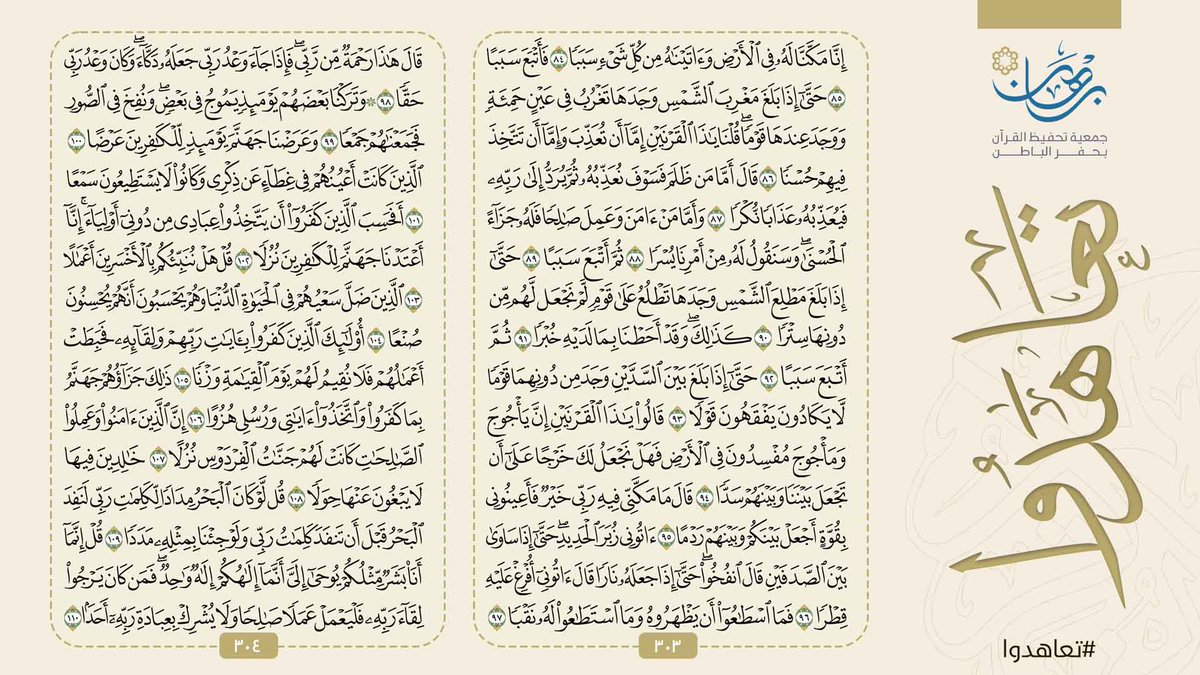 برهان
جمعية تحفيظ القرآن
بحفر الباطن
تعاهدوا
#تعاهدوا
إِنَّا مَكَّنَّا لَهُۥ فِى ٱلْأَرْضِ وَءَاتَيْنَٰهُ مِن كُلِّ شَىْءٍ سَبَبًا ٨٤ فَأَتْبَعَ سَبَبًا
٨٥ حَتَّىٰٓ إِذَا بَلَغَ مَغْرِبَ ٱلشَّمْسِ وَجَدَهَا تَغْرُبُ فِى عَيْنٍ حَمِئَةٍ
وَوَجَدَ عِندَهَا قَوْمًا ۗ قُلْنَا يَٰذَا ٱلْقَرْنَيْنِ إِمَّآ أَن تُعَذِّبَ وَإِمَّآ أَن تَتَّخِذَ
فِيهِمْ حُسْنًا ٨٦ قَالَ أَمَّا مَن ظَلَمَ فَسَوْفَ نُعَذِّبُهُۥ ثُمَّ يُرَدُّ إِلَىٰ رَبِّهِۦ
فَيُعَذِّبُهُۥ عَذَابًا نُّكْرًا ٨٧ وَأَمَّا مَنْ ءَامَنَ وَعَمِلَ صَٰلِحًا فَلَهُۥ جَزَآءً
ٱلْحُسْنَىٰ ۖ وَسَنَقُولُ لَهُۥ مِنْ أَمْرِنَا يُسْرًا ٨٨ ثُمَّ أَتْبَعَ سَبَبًا ٨٩ حَتَّىٰٓ
إِذَا بَلَغَ مَطْلِعَ ٱلشَّمْسِ وَجَدَهَا تَطْلُعُ عَلَىٰ قَوْمٍ لَّمْ نَجْعَل لَّهُم مِّن
دُونِهَا سِتْرًا ٩٠ كَذَٰلِكَ وَقَدْ أَحَطْنَا بِمَا لَدَيْهِ خُبْرًا ٩١ ثُمَّ
أَتْبَعَ سَبَبًا ٩٢ حَتَّىٰٓ إِذَا بَلَغَ بَيْنَ ٱلسَّدَّيْنِ وَجَدَ مِن دُونِهِمَا قَوْمًا
لَّا يَكَادُونَ يَفْقَهُونَ قَوْلًا ٩٣ قَالُوا۟ يَٰذَا ٱلْقَرْنَيْنِ إِنَّ يَأْجُوجَ
وَمَأْجُوجَ مُفْسِدُونَ فِى ٱلْأَرْضِ فَهَلْ نَجْعَلُ لَكَ خَرْجًا عَلَىٰٓ أَن
تَجْعَلَ بَيْنَنَا وَبَيْنَهُمْ سَدًّا ٩٤ قَالَ مَا مَكَّنِّى فِيهِ رَبِّى خَيْرٌ فَأَعِينُونِى
بِقُوَّةٍ أَجْعَلْ بَيْنَكُمْ وَبَيْنَهُمْ رَدْمًا ٩٥ ءَاتُونِى زُبَرَ ٱلْحَدِيدِ ۖ حَتَّىٰٓ إِذَا سَاوَىٰ
بَيْنَ ٱلصَّدَفَيْنِ قَالَ ٱنفُخُوا۟ ۖ حَتَّىٰٓ إِذَا جَعَلَهُۥ نَارًا قَالَ ءَاتُونِىٓ أُفْرِغْ عَلَيْهِ
قِطْرًا ٩٦ فَمَا ٱسْطَٰعُوٓا۟ أَن يَظْهَرُوهُ وَمَا ٱسْتَطَٰعُوا۟ لَهُۥ نَقْبًا ٩٧
٣٠٣
قَالَ هَٰذَا رَحْمَةٌ مِّن رَّبِّى ۖ فَإِذَا جَآءَ وَعْدُ رَبِّى جَعَلَهُۥ دَكَّآءَ ۖ وَكَانَ وَعْدُ رَبِّى
حَقًّا ٩٨ ۞ وَتَرَكْنَا بَعْضَهُمْ يَوْمَئِذٍ يَمُوجُ فِى بَعْضٍ ۖ وَنُفِخَ فِى ٱلصُّورِ
فَجَمَعْنَٰهُمْ جَمْعًا ٩٩ وَعَرَضْنَا جَهَنَّمَ يَوْمَئِذٍ لِّلْكَٰفِرِينَ عَرْضًا ١٠٠
ٱلَّذِينَ كَانَتْ أَعْيُنُهُمْ فِى غِطَآءٍ عَن ذِكْرِى وَكَانُوا۟ لَا يَسْتَطِيعُونَ سَمْعًا
١٠١ أَفَحَسِبَ ٱلَّذِينَ كَفَرُوٓا۟ أَن يَتَّخِذُوا۟ عِبَادِى مِن دُونِىٓ أَوْلِيَآءَ ۚ إِنَّآ
أَعْتَدْنَا جَهَنَّمَ لِلْكَٰفِرِينَ نُزُلًا ١٠٢ قُلْ هَلْ نُنَبِّئُكُم بِٱلْأَخْسَرِينَ أَعْمَٰلًا
١٠٣ ٱلَّذِينَ ضَلَّ سَعْيُهُمْ فِى ٱلْحَيَوٰةِ ٱلدُّنْيَا وَهُمْ يَحْسَبُونَ أَنَّهُمْ يُحْسِنُونَ
صُنْعًا ١٠٤ أُو۟لَٰٓئِكَ ٱلَّذِينَ كَفَرُوا۟ بِـَٔايَٰتِ رَبِّهِمْ وَلِقَآئِهِۦ فَحَبِطَتْ
أَعْمَٰلُهُمْ فَلَا نُقِيمُ لَهُمْ يَوْمَ ٱلْقِيَٰمَةِ وَزْنًا ١٠٥ ذَٰلِكَ جَزَآؤُهُمْ جَهَنَّمُ
بِمَا كَفَرُوا۟ وَٱتَّخَذُوٓا۟ ءَايَٰتِى وَرُسُلِى هُزُوًا ١٠٦ إِنَّ ٱلَّذِينَ ءَامَنُوا۟ وَعَمِلُوا۟
ٱلصَّٰلِحَٰتِ كَانَتْ لَهُمْ جَنَّٰتُ ٱلْفِرْدَوْسِ نُزُلًا ١٠٧ خَٰلِدِينَ فِيهَا
لَا يَبْغُونَ عَنْهَا حِوَلًا ١٠٨ قُل لَّوْ كَانَ ٱلْبَحْرُ مِدَادًا لِّكَلِمَٰتِ رَبِّى لَنَفِدَ
ٱلْبَحْرُ قَبْلَ أَن تَنفَدَ كَلِمَٰتُ رَبِّى وَلَوْ جِئْنَا بِمِثْلِهِۦ مَدَدًا ١٠٩ قُلْ إِنَّمَآ
أَنَا۠ بَشَرٌ مِّثْلُكُمْ يُوحَىٰٓ إِلَىَّ أَنَّمَآ إِلَٰهُكُمْ إِلَٰهٌ وَٰحِدٌ ۖ فَمَن كَانَ يَرْجُوا۟
لِقَآءَ رَبِّهِۦ فَلْيَعْمَلْ عَمَلًا صَٰلِحًا وَلَا يُشْرِكْ بِعِبَادَةِ رَبِّهِۦٓ أَحَدًۢا ١١٠
٣٠٤